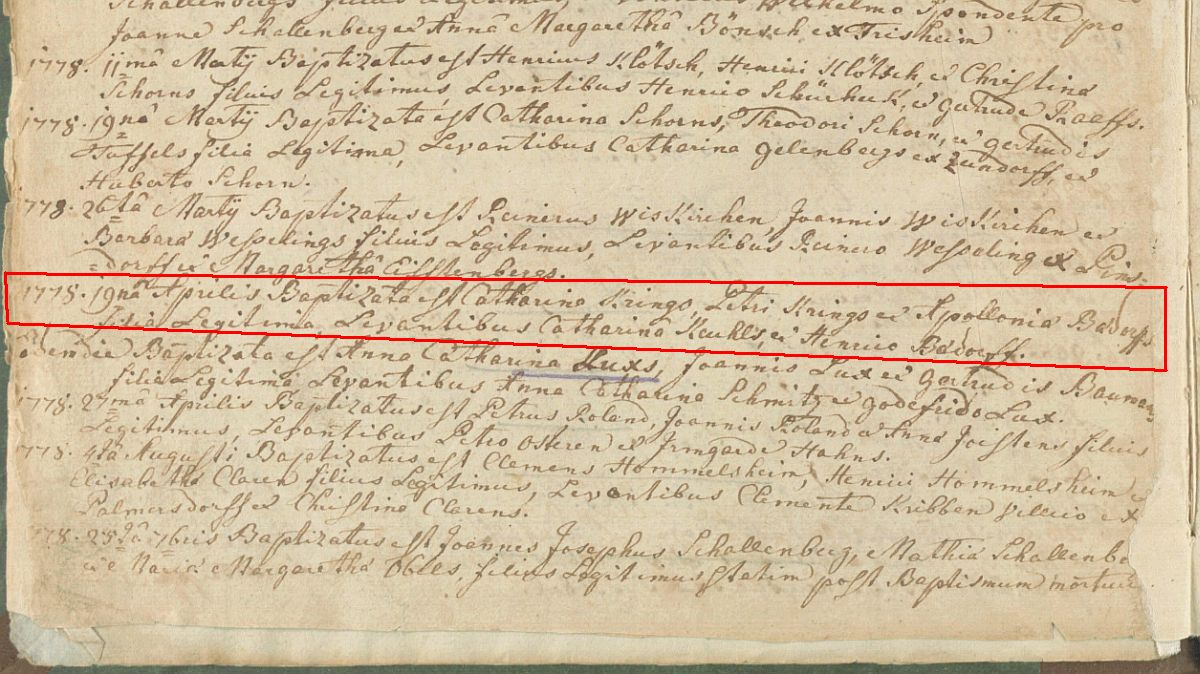 Schallenbergs filius Legitimus, Wilhelmo Spondente pro
Joanne Schallenberg et Annâ Margarethâ Bönsch ex Frisheim
1778. 11mâ Martij Baptizatus est Henricus Klötsch, Henrici Klötsch et Christina
Schorns filius Legitimus Levantibus Henrico Schürheck, et Gertrude Raeffs.
1778. 19nâ Martij Baptizata est Catharina Schorns, Theodori Schorn, et Gertrudis
Tussels filia Legitima, Levantibus Catharina Gelenbergs ex Zündorff, et
Huberto Schorn.
778. 26tâ Martij Baptizatus est Reinerus Wiskirchen Joannis Wiskirchen et
Barbara Wesselings filius Legitimus, Levantibus Reinero Wesseling ex Pins-
=dorff et Margarethâ Eisstenbergs.
1778. 19nâ Aprilis Baptizata est Catharina Krings, Petri Krings et Apollonia Badorffs
filia Legitima, Levantibus Catharina Keuhls, et Henrico Badorff.
odem die Baptizata est Anna Catharina Luxs, Joannis Lux et Gertrudis Bauman
filia Legitima Levantibus Anna Catharina Schmitz et Godefrido Lux.
1778. 27mâ Aprilis Baptizatus est Petrus Roland, Joannis Roland et Anna Joistens filius
Legitimus, Levantibus Petro Osteren et Irmgarde Hahns.
778. 4tâ Augusti Baptizatus est Clemens Hommelsheim, Henrici Hommelsheim et
Elisabetha Claren filius Legitimus, Levantibus Clemente Kribben Villico ex
Palmersdorff et Christina Clarens.
778. 25tâ 7bris Baptizatus est Joannes Josephus Schallenberg, Mathia Schallenbe
et Maria Margaretha Obels, filius Legitimus statim post Baptismum mortuus